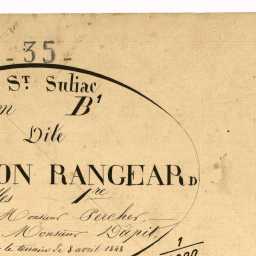 - 35 -
St Suliac
on B¹
Dite
ON RANGEARD
les 1re
Monsieur Percher
Monsieur Dapit
le terrain de 8 avril 1828
1